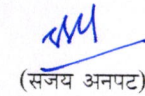 (संजय अनपट)